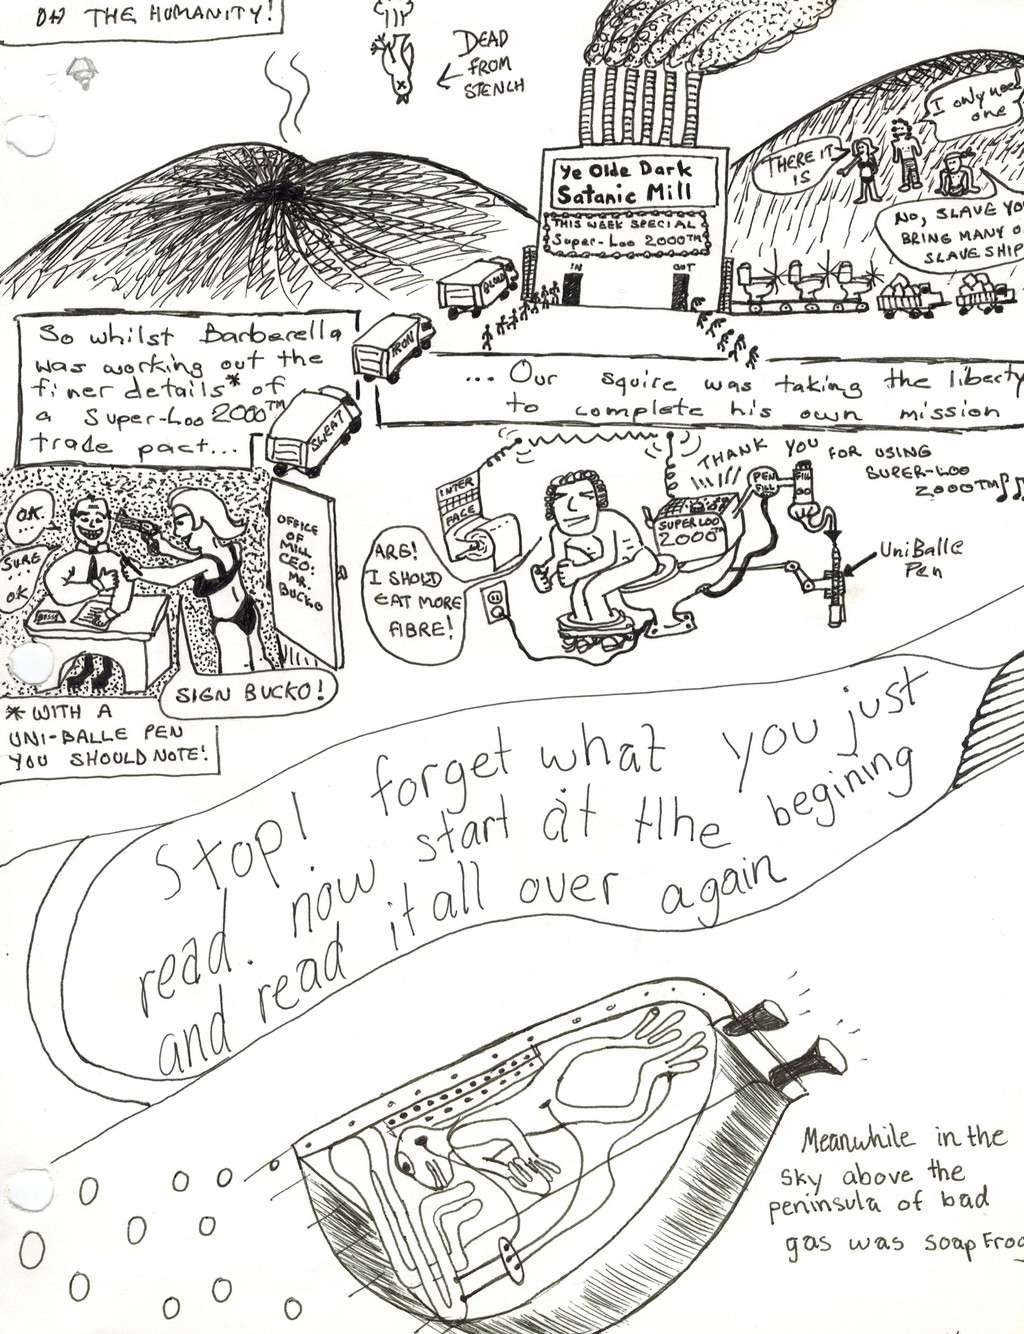 OH THE HUMANITY!
DEAD
FROM
STENCH
I only need
one
THERE IT
IS
NO, SLAVE YOU
BRING MANY O
SLAVE SHIP
Ye Olde Dark
Satanic Mill
THIS WEEK SPECIAL
Super-Loo 2000™
IN
OUT
BLOOD
IRON
SWEAT
So whilst Barberella
was working out the
finer details* of
a Super-Loo 2000™
trade pact...
... Our squire was taking the liberty
to complete his own mission
OK...
SURE...
OK..
BOSS
OFFICE
OF
MILL
CEO:
MR.
BUCKO
SIGN BUCKO!
* WITH A
UNI-BALLE PEN
YOU SHOULD NOTE!
INTER
FACE
ARG!
I SHOULD
EAT MORE
FIBRE!
SUPER LOO
2000™
THANK YOU
FOR USING
SUPER-LOO
2000™
PEN
FILL
FILL
GO
UniBalle
Pen
Stop! forget what you just
read. now start at tlhe begining
and read it all over again
Meanwhile in the
sky above the
peninsula of bad
gas was soap Frog